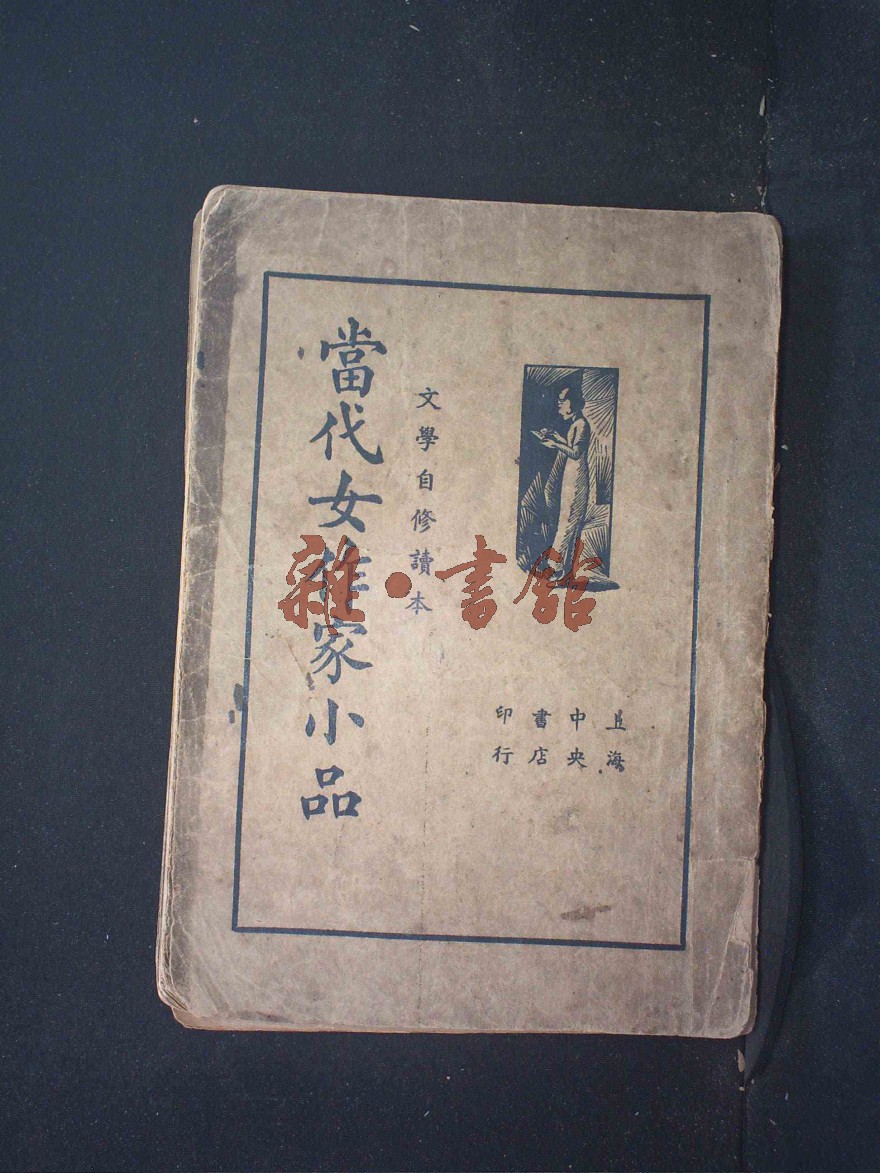 當代女作家小品
文學自修讀本
上海
中央
書店
印行
雜·書館